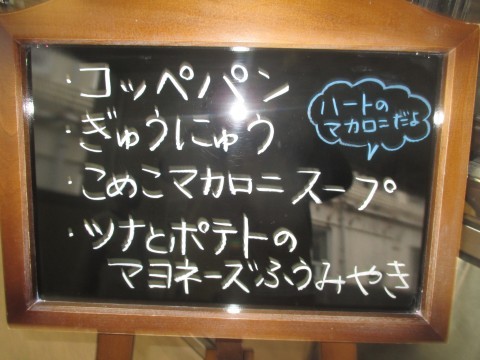 ・コッペパン
・ぎゅうにゅう
・こめこマカロニスープ
・ツナとポテトの
マヨネーズふうみやき
ハートの
マカロニだよ